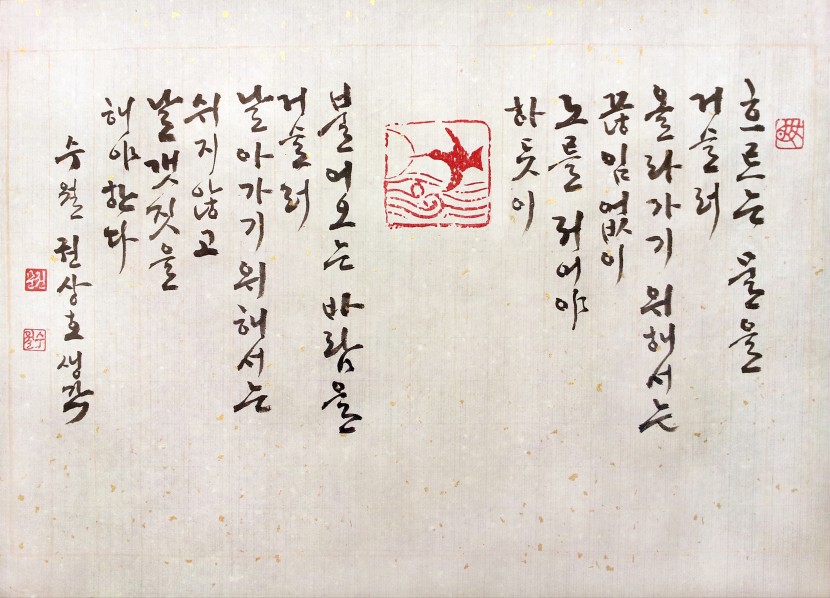 흐르는 물을
거슬러
올라가기 위해서는
끊임없이
노를 저어야
하듯이
불어오는 바람을
거슬러
날아가기 위해서는
쉬지않고
날갯짓을
해야한다
수월 권상호 생각